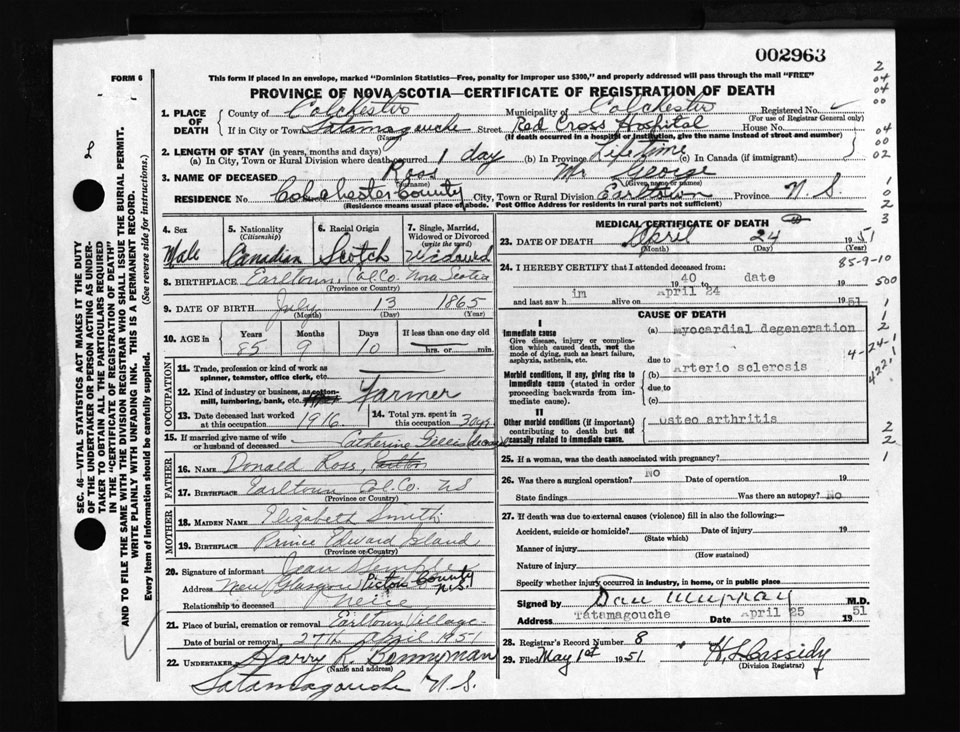 002963
FORM 6
This form if placed in an envelope, marked "Dominion Statistics—Free, penalty for improper use $300," and properly addressed will pass through the mail "FREE"
PROVINCE OF NOVA SCOTIA—CERTIFICATE OF REGISTRATION OF DEATH
SEC. 46—VITAL STATISTICS ACT MAKES IT THE DUTY
OF THE UNDERTAKER OR PERSON ACTING AS UNDER-
TAKER TO OBTAIN ALL THE PARTICULARS REQUIRED
IN THE "CERTIFICATE OF REGISTRATION OF DEATH"
AND TO FILE THE SAME WITH THE DIVISION REGISTRAR WHO SHALL ISSUE THE BURIAL PERMIT.
WRITE PLAINLY WITH UNFADING INK. THIS IS A PERMANENT RECORD.
Every item of information should be carefully supplied. (See reverse side for instructions.)
1. PLACE OF DEATH County of Colchester Municipality of Colchester Registered No.
(For use of Registrar General only)
If in City or Town Tatamagouche Street Red Cross Hospital House No.
(Name) (If death occurred in a hospital or institution, give the name instead of street and number)
2. LENGTH OF STAY (in years, months and days)
(a) In City, Town or Rural Division where death occurred 1 day (b) In Province Lifetime (c) In Canada (if immigrant)
3. NAME OF DECEASED Ross Mr George
(Surname) (Given name or names)
RESIDENCE No. Colchester County City, Town or Rural Division Earltown Province N.S.
(Residence means usual place of abode. Post Office Address for residents in rural parts not sufficient)
4. Sex Male
5. Nationality (Citizenship) Canadian
6. Racial Origin Scotch
7. Single, Married, Widowed or Divorced (write the word) Widowed
8. BIRTHPLACE Earltown Col. Co. Nova Scotia
(Province or Country)
9. DATE OF BIRTH July 13 1865
(Month) (Day) (Year)
10. AGE in Years Months Days If less than one day old
85 9 10 hrs. or min.
OCCUPATION
11. Trade, profession or kind of work as spinner, teamster, office clerk, etc.
12. Kind of industry or business, as cotton-mill, lumbering, bank, etc. Farmer
13. Date deceased last worked at this occupation 1916
14. Total yrs. spent in this occupation 30 yrs.
15. If married give name of wife or husband of deceased Catherine Gillis
FATHER
16. NAME Donald Ross,
17. BIRTHPLACE Earltown Col. Co. NS
(Province or Country)
MOTHER
18. MAIDEN NAME Elizabeth Smith
19. BIRTHPLACE Prince Edward Island
(Province or Country)
20. Signature of informant Jean
Address New Glasgow Pictou County N.S.
Relationship to deceased Neice
21. Place of burial, cremation or removal Earltown Village
Date of burial or removal 27th April 1951
22. UNDERTAKER Harry R. Bonnyman
(Name and address)
Tatamagouche N.S.
MEDICAL CERTIFICATE OF DEATH
23. DATE OF DEATH April 24 1951
(Month) (Day) (Year)
85-9-10
24. I HEREBY CERTIFY that I attended deceased from:
19 40 to date
and last saw him alive on April 24 19 51
CAUSE OF DEATH
I
Immediate cause
Give disease, injury or complication which caused death, not the mode of dying, such as heart failure, asphyxia, asthenia, etc.
(a) myocardial degeneration
due to
Morbid conditions, if any, giving rise to immediate cause (stated in order proceeding backwards from immediate cause).
(b) Arterio sclerosis
due to
(c)
II
Other morbid conditions (if important) contributing to death but not causally related to immediate cause.
Osteo arthritis
25. If a woman, was the death associated with pregnancy?
26. Was there a surgical operation? No Date of operation 19
State findings Was there an autopsy? No
27. If death was due to external causes (violence) fill in also the following:—
Accident, suicide or homicide? Date of injury 19
(State which)
Manner of injury
(How sustained)
Nature of injury
Specify whether injury occurred in industry, in home, or in public place
Signed by Dan Murray M.D.
Address Tatamagouche Date April 25 19 51
28. Registrar's Record Number 8
29. Filed May 1st 1951 H L Cassidy
(Division Registrar)